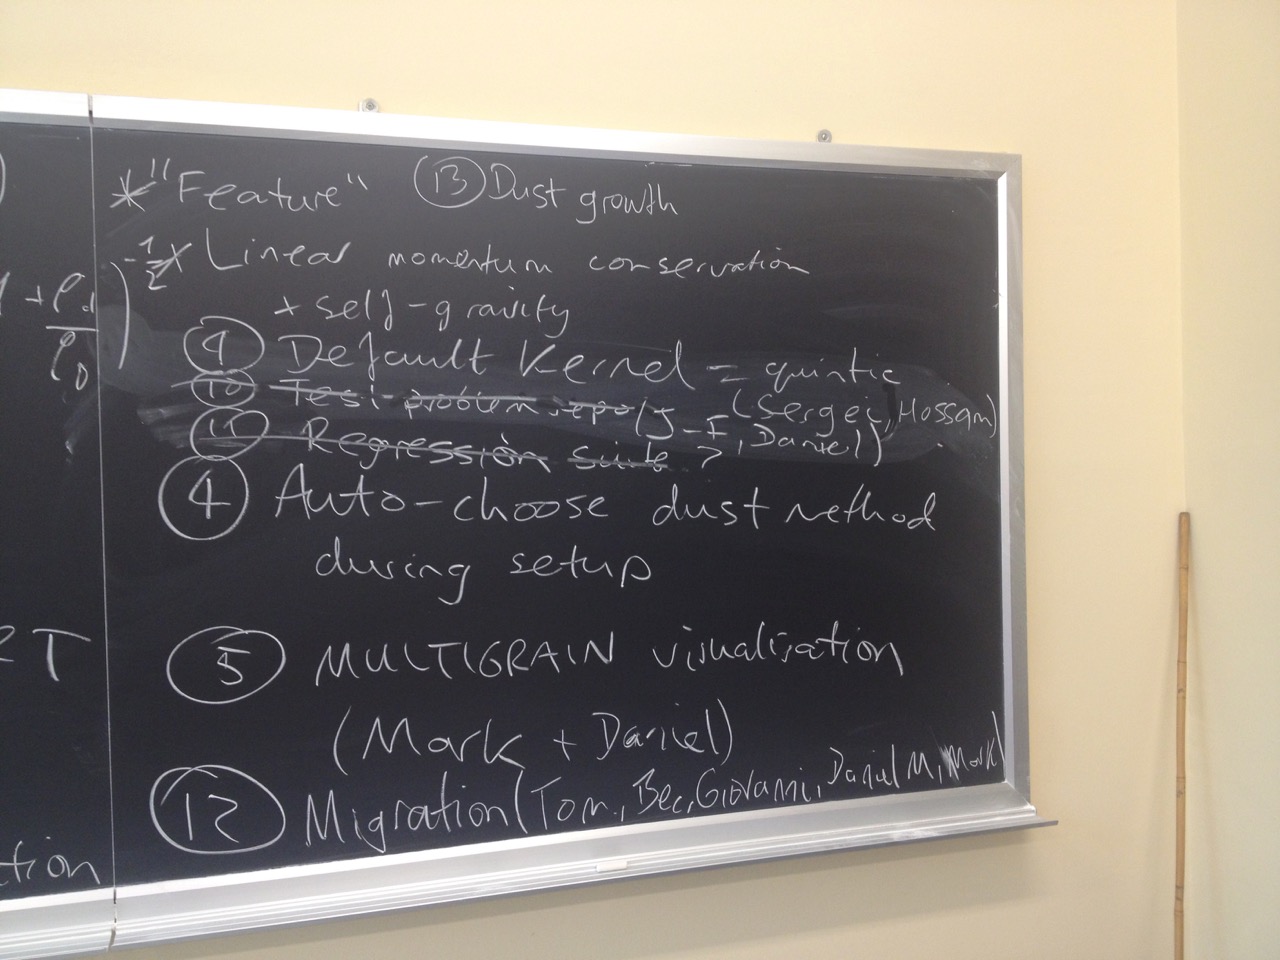 * "Feature" ⑬ Dust growth
* Linear momentum conservation
+ self-gravity
⑨ Default Kernel = quintic
⑩ Test problem repo (Sergei, Hossam)
⑪ Regression suite? (J-F, Daniel)
④ Auto-choose dust method
during setup
⑤ MULTIGRAIN visualisation
(Mark + Daniel)
⑫ Migration (Tom, Bec, Giovanni, Daniel M, Mark)
)^-1/2
+ ρd
ρ0
RT
tion